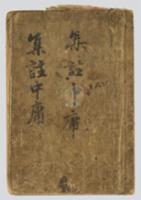 集註中庸
集註中庸